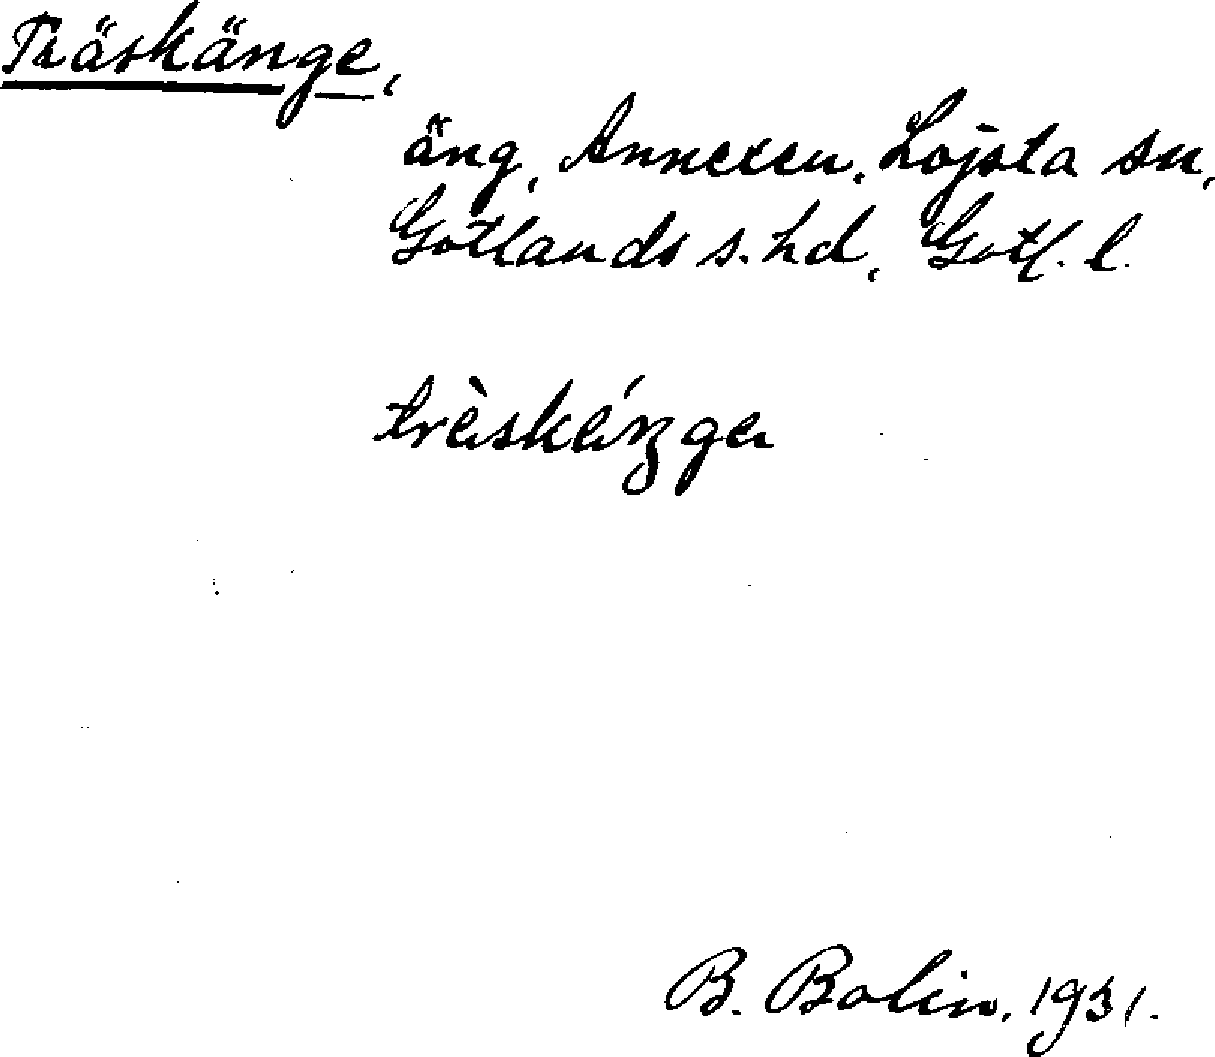 Träskänge,
äng, Annexen, Lojsta sn,
Gotlands s. hd, Gotl. l.
träskänga
B. Bolin. 1931.